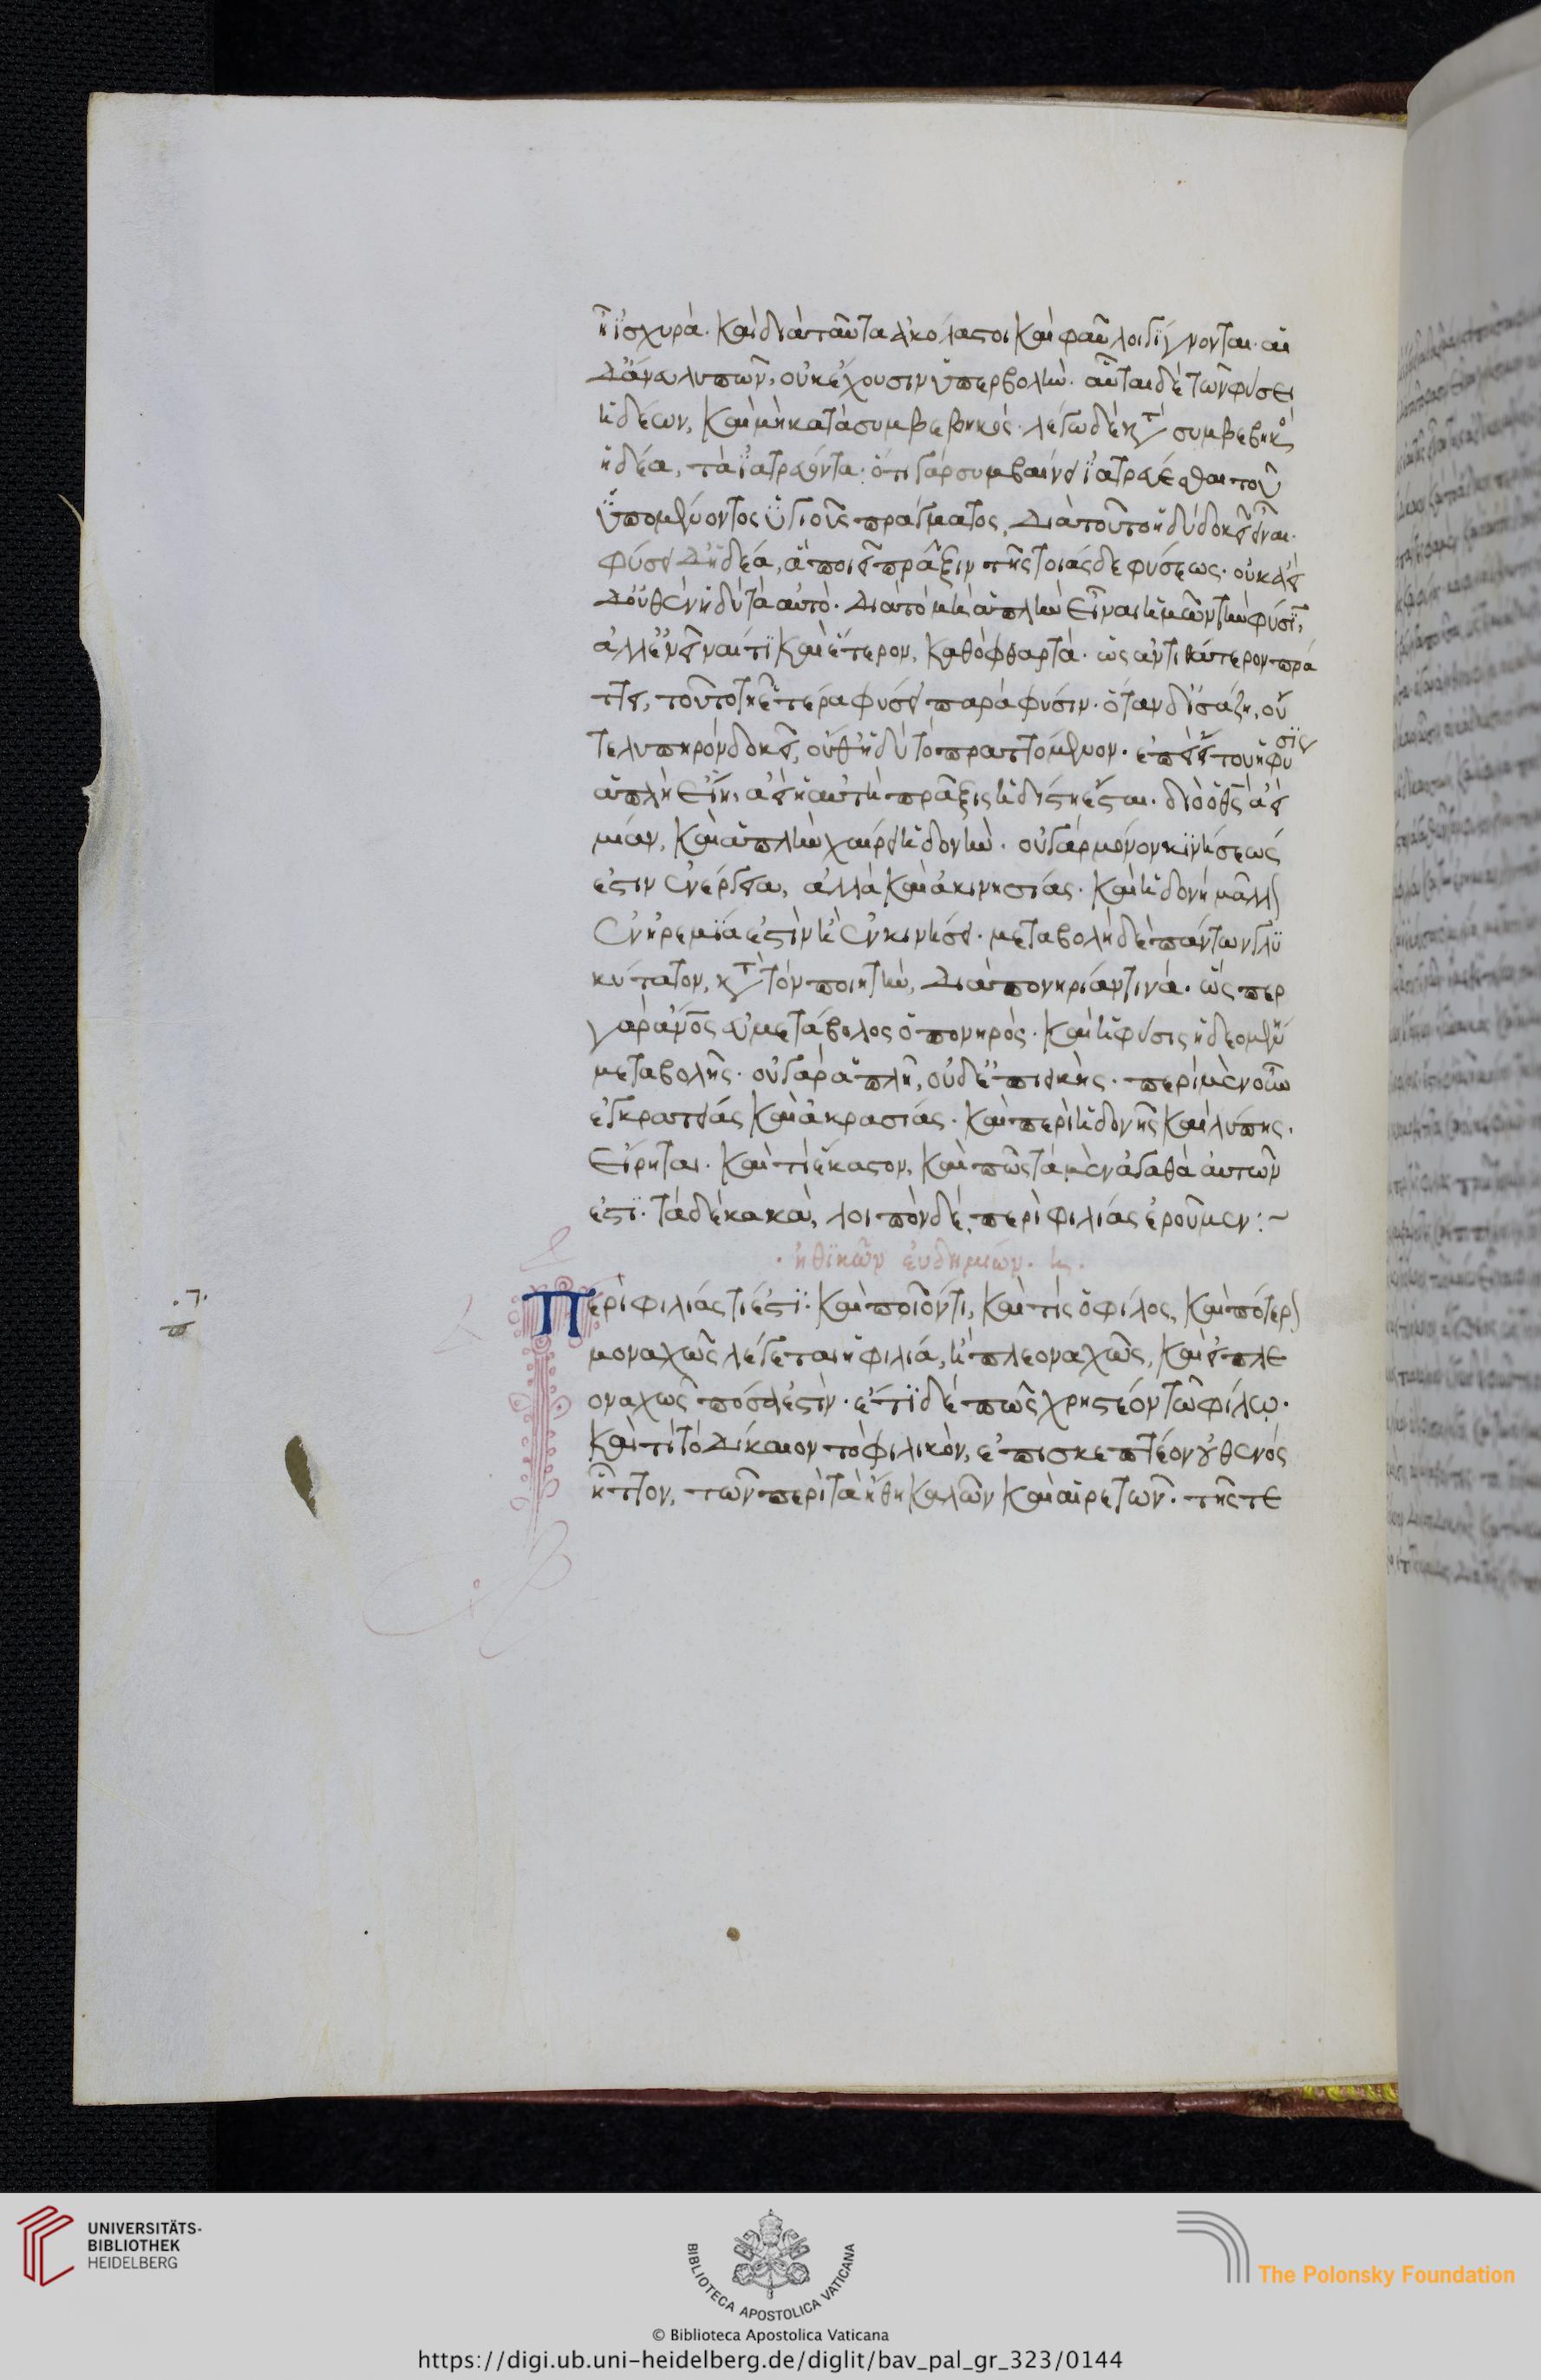 ἢ ἰσχυρά. καὶ διὰ ταῦτα ἀκόλαστοι καὶ φαῦλοι γίγνονται. αἱ
δ' ἄνευ λυπῶν, οὐκ ἔχουσιν ὑπερβολήν. αὗται δὲ τῶν φύσει
ἡδέων, καὶ μὴ κατὰ συμβεβηκός. λέγω δὲ κατὰ συμβεβηκὸς
ἡδέα, τὰ ἰατρεύοντα. ὅτι γὰρ συμβαίνει ἰατρεύεσθαι τοῦ
ὑπομένοντος ὑγιοῦς πράγματος, διὰ τοῦτο ἡδὺ δοκεῖ εἶναι.
φύσει δ' ἡδέα, ἃ ποιεῖ πρᾶξιν τῆς τοιᾶσδε φύσεως. οὐκ ἀεὶ
δ' οὐθὲν ἡδὺ τὸ αὐτὸ. διὰ τὸ μὴ ἁπλῆν εἶναι ἡμῶν τὴν φύσιν,
ἀλλ' ἐνεῖναί τι καὶ ἕτερον, καθὸ φθαρτά. ὡς ἄν τι θάτερον πρά
ττει, τοῦτο τῇ ἑτέρα φύσει παρὰ φύσιν. ὅταν δ' ἰσάζῃ, οὔ
τε λυπηρὸν δοκεῖ, οὔθ' ἡδὺ τὸ πραττόμενον. ἐπεὶ εἴ του ἡ φύ
σις
ἁπλῆ εἴη, ἀεὶ ἡ αὐτὴ πρᾶξις ἡδίστη ἔσται. διὸ ὁ θεὸς ἀεὶ
μίαν, καὶ ἁπλῆν χαίρει ἡδονήν. οὐ γὰρ μόνον κινήσεώς
ἐστιν ἐνέργεια, ἀλλὰ καὶ ἀκινησίας. καὶ ἡδονὴ μᾶλλον
ἐν ἠρεμίᾳ ἐστὶν ἢ ἐν κινήσει. μεταβολὴ δὲ πάντων γλυ
κύτατον, κατὰ τὸν ποιητὴν, διὰ πονηρίαν τινά. ὥσπερ
γὰρ ἄνθρωπος εὐμετάβολος ὁ πονηρός. καὶ ἡ φύσις ἡ δεομένη
μεταβολῆς. οὐ γὰρ ἁπλῆ, οὐδ' ἐπιεικής. περὶ μὲν οὖν
ἐγκρατείας καὶ ἀκρασίας. καὶ περὶ ἡδονῆς καὶ λύπης.
εἴρηται. καὶ τί ἕκαστον, καὶ πῶς τὰ μὲν ἀγαθὰ αὐτῶν
ἐστι. τὰ δὲ κακὰ, λοιπὸν δὲ, περὶ φιλίας ἐροῦμεν:~
. ἠθικῶν εὐδημίων. η.
Περὶ φιλίας τί ἐστι. καὶ ποῖόν τι, καὶ τίς ὁ φίλος, καὶ πότερον
μοναχῶς λέγεται ἡ φιλία, ἢ πλεοναχῶς, καὶ εἰ πλε
οναχῶς πόσα ἐστίν. ἔτι δὲ πῶς χρηστέον τῷ φίλῳ.
καὶ τί τὸ δίκαιον τὸ φιλικὸν, ἐπισκεπτέον οὐθενὸς
ἧττον, τῶν περὶ τὰ ἤθη καλῶν καὶ αἱρετῶν. τῆς τε
UNIVERSITÄTS-
BIBLIOTHEK
HEIDELBERG
BIBLIOTECA APOSTOLICA VATICANA
The Polonsky Foundation
© Biblioteca Apostolica Vaticana
https://digi.ub.uni-heidelberg.de/diglit/bav_pal_gr_323/0144